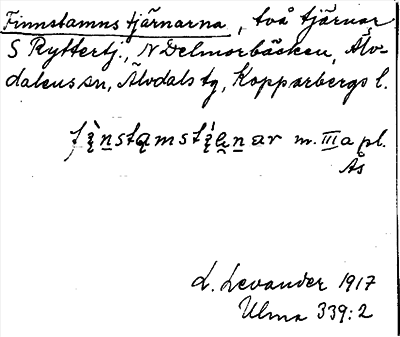 Finnstamnstjärnarna, två tjärnar
S Ryttertj., N Delmorbäcken, Älv-
dalens sn, Älvdals tg, Kopparbergs l.
m. III a pl.
Ås
L. Levander 1917
Ulma 339:2